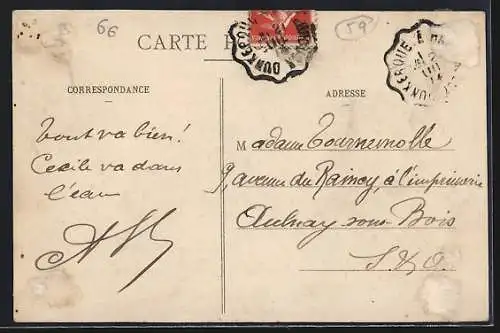 66
59
CARTE
DUNKERQUE
DUNKERQUE
CORRESPONDANCE
ADRESSE
Tout va bien!
Cecile va dans
l'eau
Madame Tournemolle
9, avenue du Raincy, à l'imprimerie
Aulnay sous-Bois
S. & O.